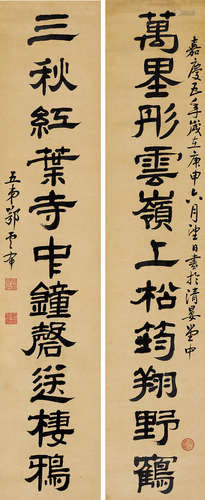 嘉慶五年歲在庚申六月望日書於清晏堂中
萬里彤雲嶺上松筠翔野鶴
三秋紅葉寺中鐘磬送棲鴉
五亭鄂雲布